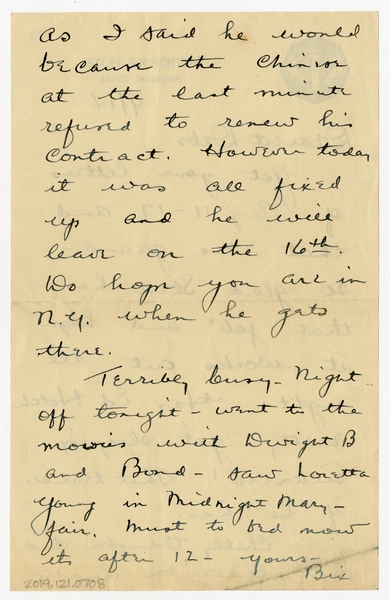 as I said he would
because the Chinese
at the last minute
refused to renew his
contract. However today
it was all fixed
up and he will
leave on the 16th.
Do hope you are in
N.Y. when he gets
there.
Terribly busy - Night
off tonight - went to the
movies with Dwight B
and Bond - saw Loretta
Young in Midnight Mary -
fair. Must to bed now
its after 12 - yours -
Bix
2019.121.0708